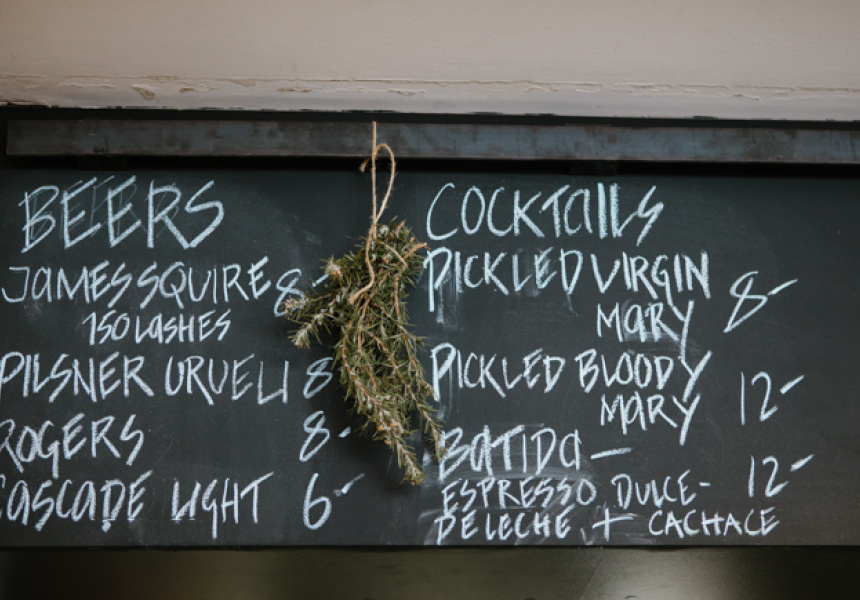 BEERS
JAMES SQUIRE 8-
150 LASHES
PILSNER URUELL 8
ROGERS 8-
CASCADE LIGHT 6-
COCKTAILS
PICKLED VIRGIN
MARY 8-
PICKLED BLOODY
MARY 12-
BATIDA — 12-
ESPRESSO DULCE-
DE LECHE + CACHACE